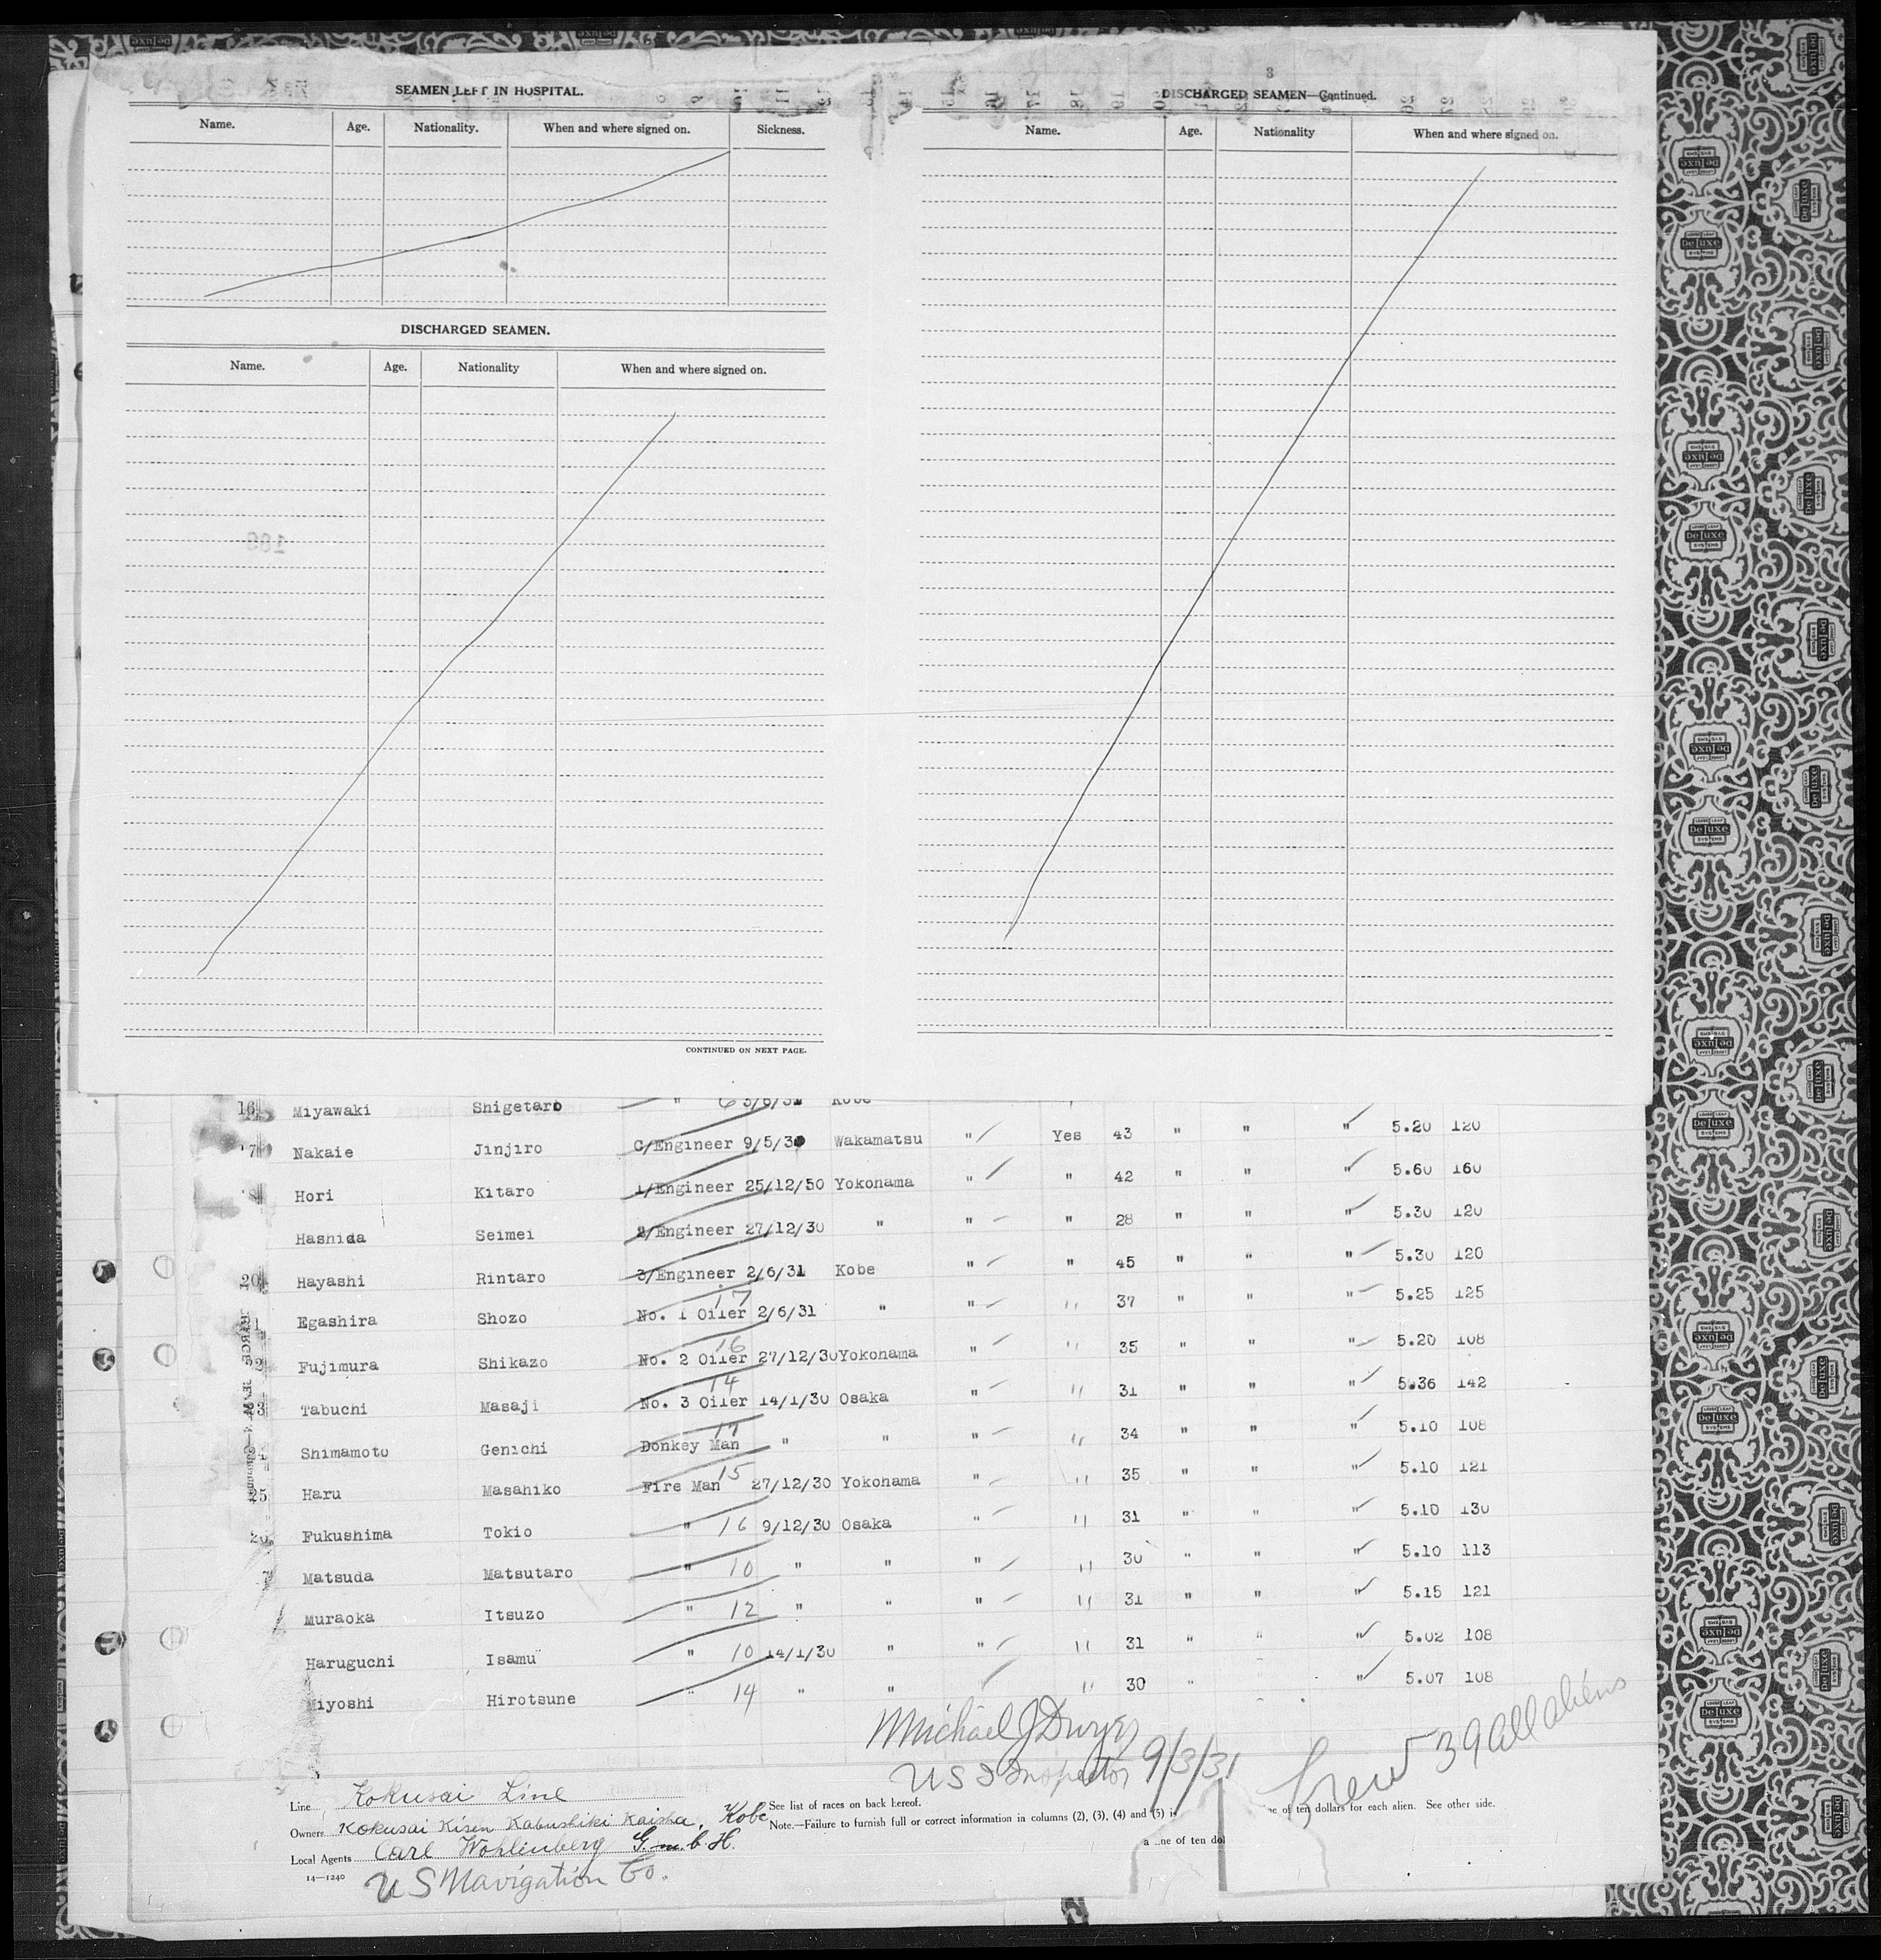 SEAMEN LEFT IN HOSPITAL.
Name. Age. Nationality. When and where signed on. Sickness.
DISCHARGED SEAMEN.
Name. Age. Nationality When and where signed on.
CONTINUED ON NEXT PAGE.
3
DISCHARGED SEAMEN—Continued.
Name. Age. Nationality When and where signed on.
16 Miyawaki Shigetaro " 6 3/6/31 Kobe
Nakaie Jinjiro C/Engineer 9/5/30 Wakamatsu " Yes 43 " " " 5.20 120
Hori Kitaro 1/Engineer 25/12/50 Yokohama " " 42 " " " 5.60 160
Hashida Seimei 2/Engineer 27/12/30 " " " 28 " " " 5.30 120
20 Hayashi Rintaro 3/Engineer 2/6/31 Kobe " " 45 " " " 5.30 120
Egashira Shozo No. 1 Oiler 17 2/6/31 " " " 37 " " " 5.25 125
Fujimura Shikazo No. 2 Oiler 16 27/12/30 Yokohama " " 35 " " " 5.20 108
Tabuchi Masaji No. 3 Oiler 14 14/1/30 Osaka " " 31 " " " 5.36 142
Shimamoto Genichi Donkey Man 17 " " " " 34 " " " 5.10 108
25 Haru Masahiko Fire Man 15 27/12/30 Yokohama " " 35 " " " 5.10 121
Fukushima Tokio " 16 9/12/30 Osaka " " 31 " " " 5.10 130
Matsuda Matsutaro " 10 " " " " 30 " " " 5.10 113
Muraoka Itsuzo " 12 " " " " 31 " " " 5.15 121
Haruguchi Isamu " 10 14/1/30 " " " 31 " " " 5.02 108
Miyoshi Hirotsune " 14 " " " 30 " " 5.07 108
Michael J Dwyer
US I Inspector 9/3/31
Crew 39 all aliens
Line Kokusai Line
Owners Kokusai Kisen Kabushiki Kaisha, Kobe
Local Agents Carl Wohlenberg G.m.b.H.
14—1240 US Navigation Co.
See list of races on back hereof.
Note.—Failure to furnish full or correct information in columns (2), (3), (4) and (5) is
of ten dollars for each alien. See other side.
a ne of ten dol